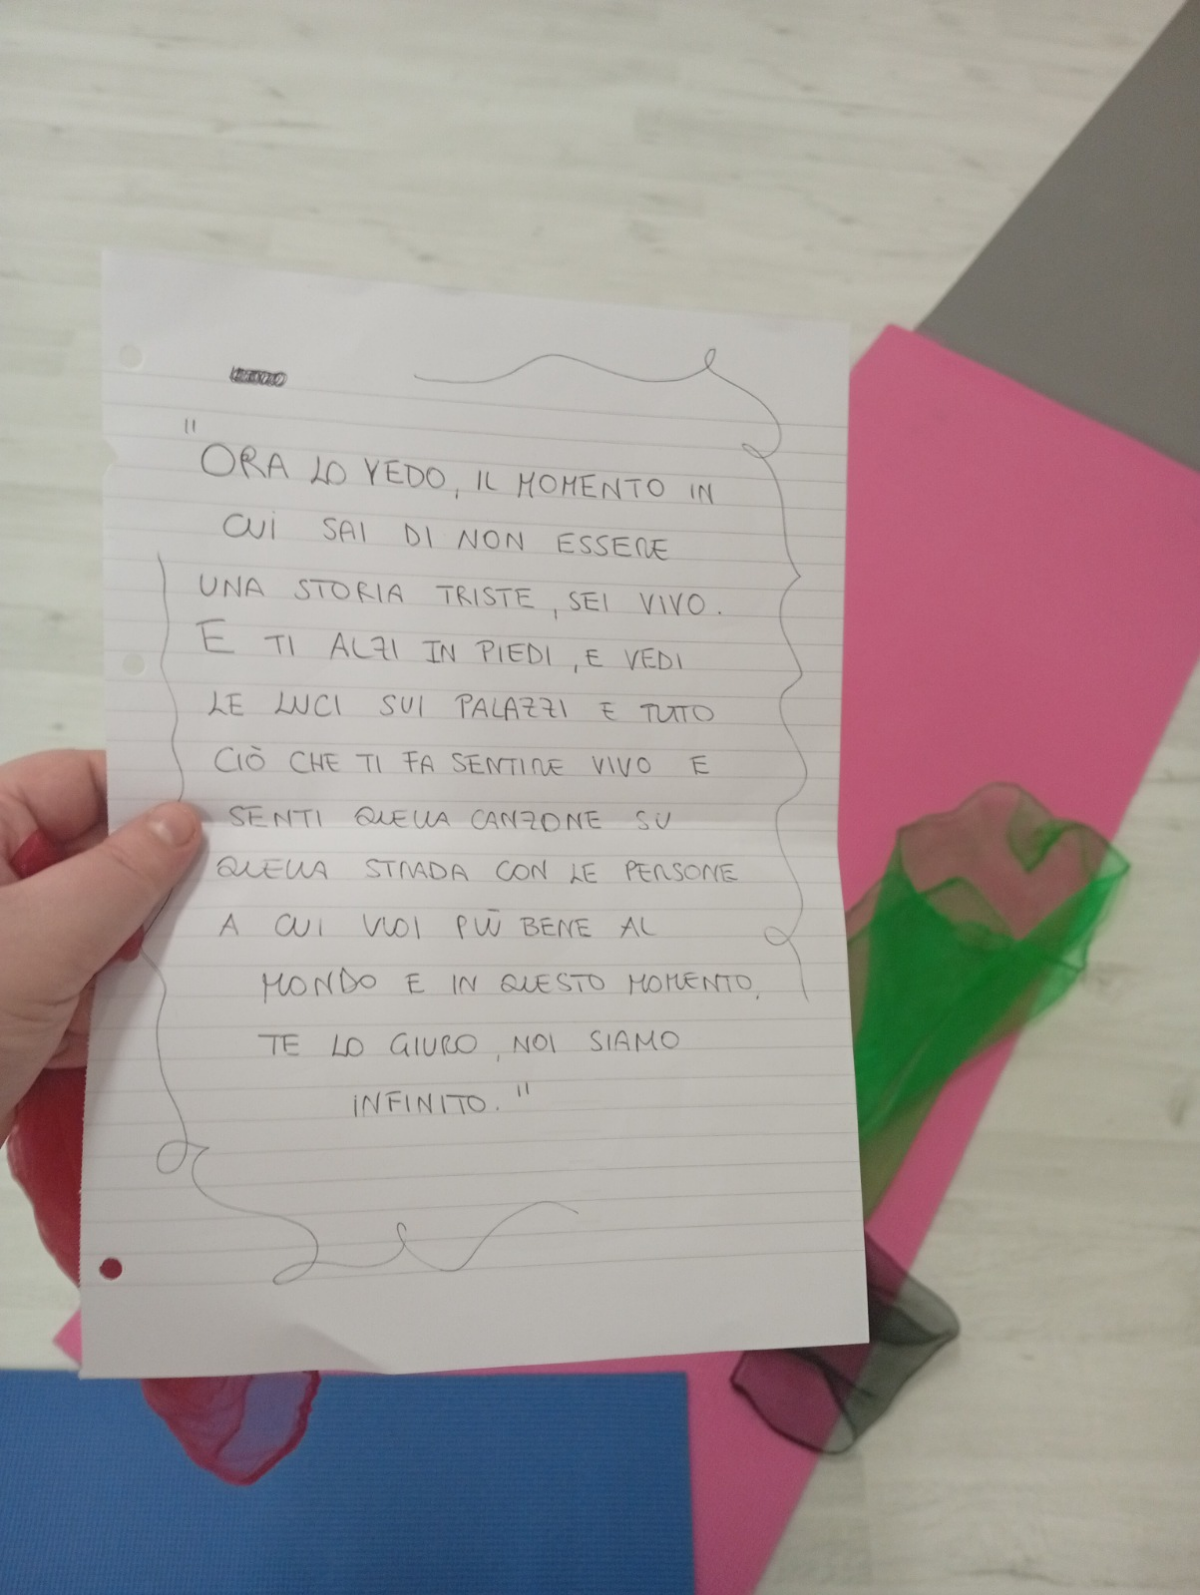 "ORA LO VEDO, IL MOMENTO IN
CUI SAI DI NON ESSERE
UNA STORIA TRISTE, SEI VIVO.
E TI ALZI IN PIEDI, E VEDI
LE LUCI SUI PALAZZI E TUTTO
CIÒ CHE TI FA SENTIRE VIVO E
SENTI QUELLA CANZONE SU
QUELLA STRADA CON LE PERSONE
A CUI VUOI PIÙ BENE AL
MONDO E IN QUESTO MOMENTO,
TE LO GIURO, NOI SIAMO
INFINITO."